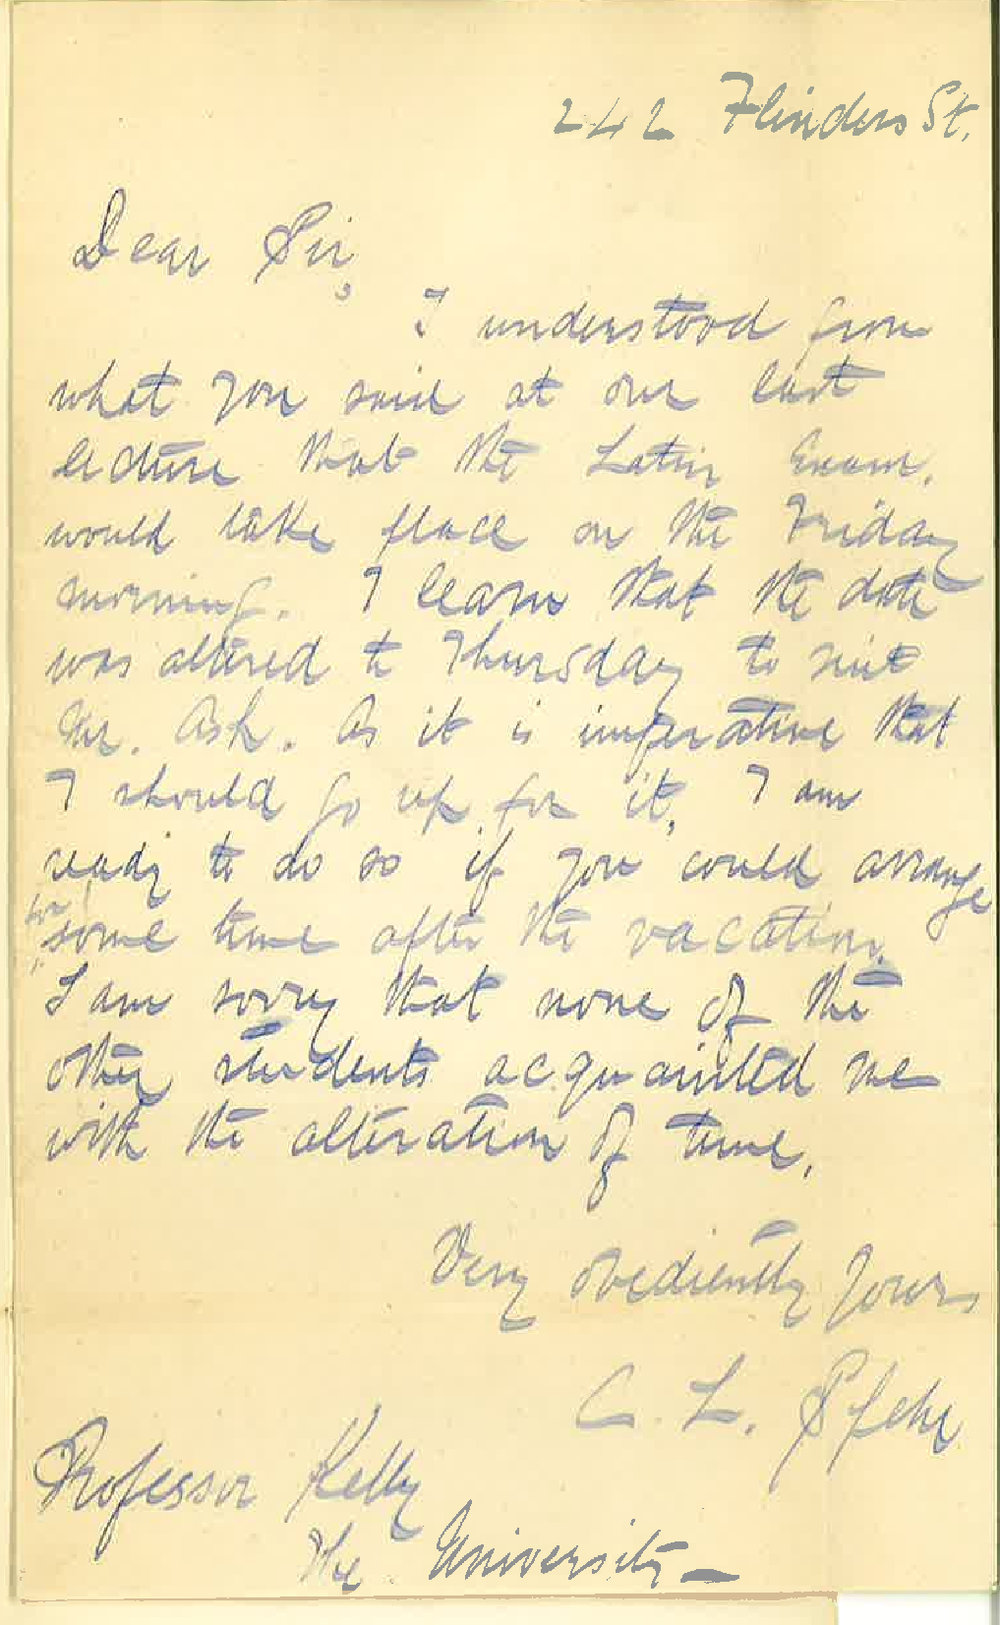 242 Flinders St.
Dear Sir,
I understood from
what you said at our last
lecture that the Latin Exam.
would take place on the Friday
morning. I learn that the date
was altered to Thursday to suit
Mr. Ash. As it is imperative that
I should go up for it, I am
ready to do so if you could arrange
for
some time after the vacation.
I am sorry that none of the
other students acquainted me
with the alteration of time.
Very obediently yours
C. L.
Professor Kelly
The University